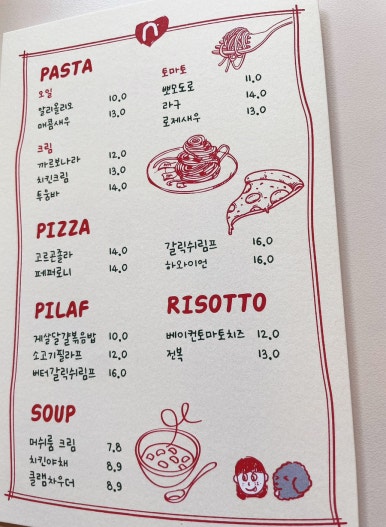 n
PASTA
오일
알리올리오 10.0
매콤새우 13.0
크림
까르보나라 12.0
치킨크림 13.0
투움바 14.0
토마토
뽀모도로 11.0
라구 14.0
로제새우 13.0
PIZZA
고르곤졸라 14.0
페퍼로니 14.0
갈릭쉬림프 16.0
하와이언 16.0
PILAF
게살달걀볶음밥 10.0
소고기필라프 12.0
버터갈릭쉬림프 16.0
RISOTTO
베이컨토마토치즈 12.0
전복 13.0
SOUP
머쉬룸 크림 7.8
치킨야채 8.9
클램차우더 8.9